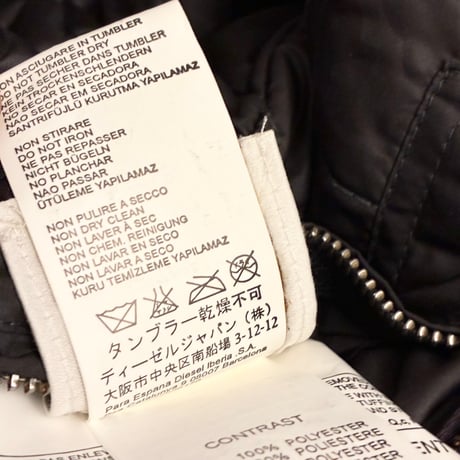 NON ASCIUGARE IN TUMBLER
DO NOT TUMBLE DRY
NE PAS SECHER DANS TUMBLER
KEIN TROCKENSCHLENDERN
NO SECAR EN SECADORA
NAO SECAR EM SECADORA
SANTRIFÜJLÜ KURUTMA YAPILAMAZ
NON STIRARE
DO NOT IRON
NE PAS REPASSER
NICHT BÜGELN
NO PLANCHAR
NAO PASSAR
ÜTÜLEME YAPILAMAZ
NON PULIRE A SECCO
NON DRY CLEAN
NON LAVER A SEC
NON CHEM. REINIGUNG
NON LAVAR A SECO
NON LAVAR A SECO
KURU TEMIZLEME YAPILAMAZ
タンブラー乾燥不可
ディーゼルジャパン (株)
大阪市中央区南船場3-12-12
Para Espana Diesel Iberia S.A.
08007 Barcelona
CONTRAST
100% POLYESTER
100% POLIESTERE
POLYESTER